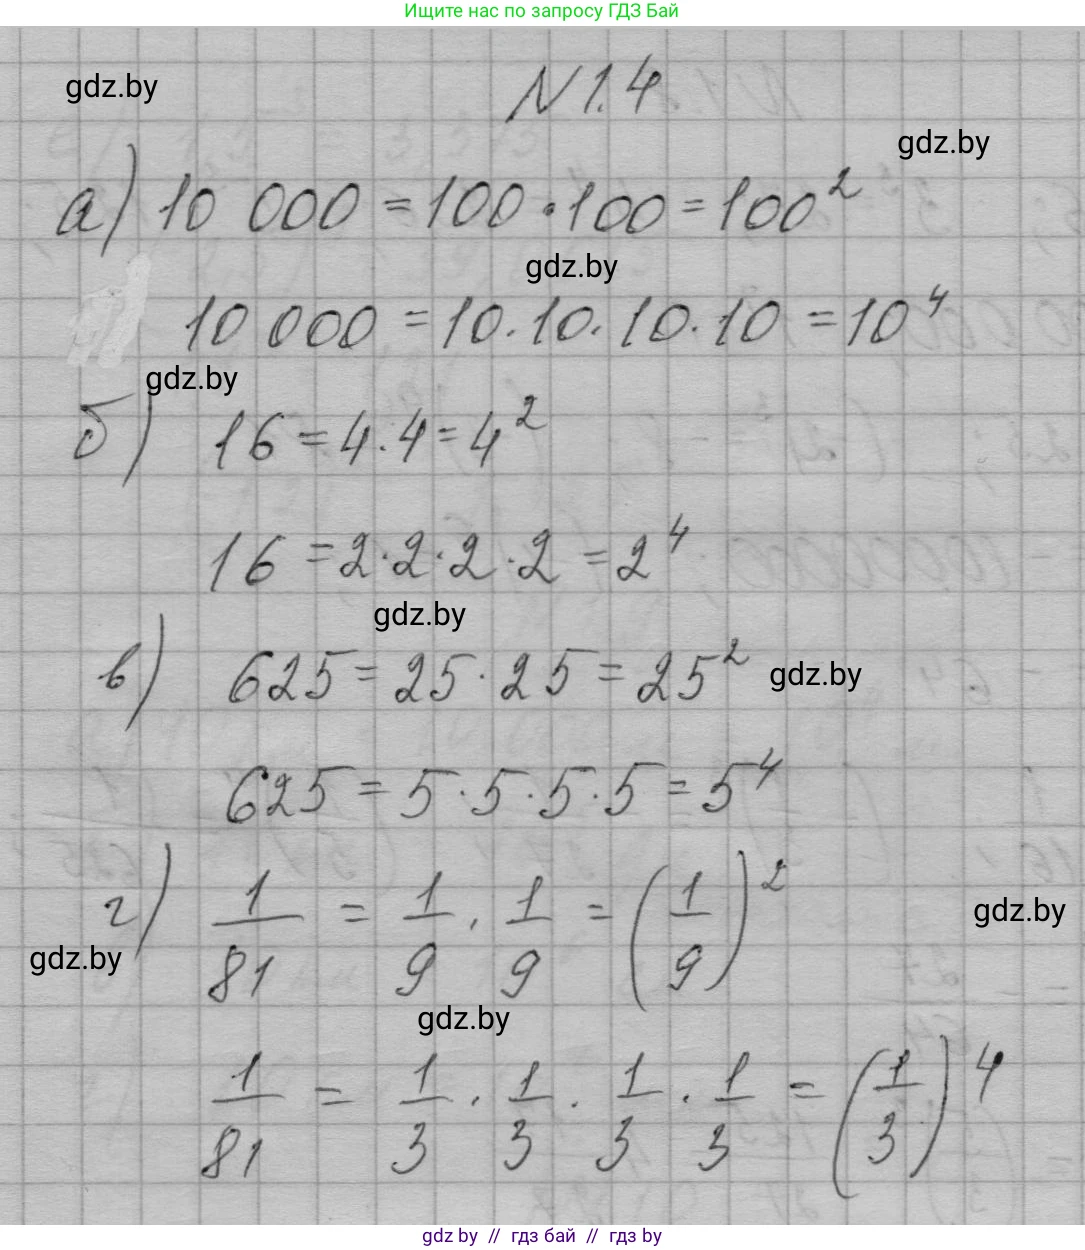 Ищите нас по запросу ГДЗ Бай
gdz.by
N1.4
gdz.by
а) 10 000 = 100 · 100 = 100²
gdz.by
10 000 = 10 · 10 · 10 · 10 = 10⁴
gdz.by
б) 16 = 4 · 4 = 4²
16 = 2 · 2 · 2 · 2 = 2⁴
gdz.by
в) 625 = 25 · 25 = 25²
gdz.by
625 = 5 · 5 · 5 · 5 = 5⁴
г) 1/81 = 1/9 · 1/9 = (1/9)²
gdz.by
gdz.by
gdz.by
1/81 = 1/3 · 1/3 · 1/3 · 1/3 = (1/3)⁴
gdz.by // гдз бай // гдз by